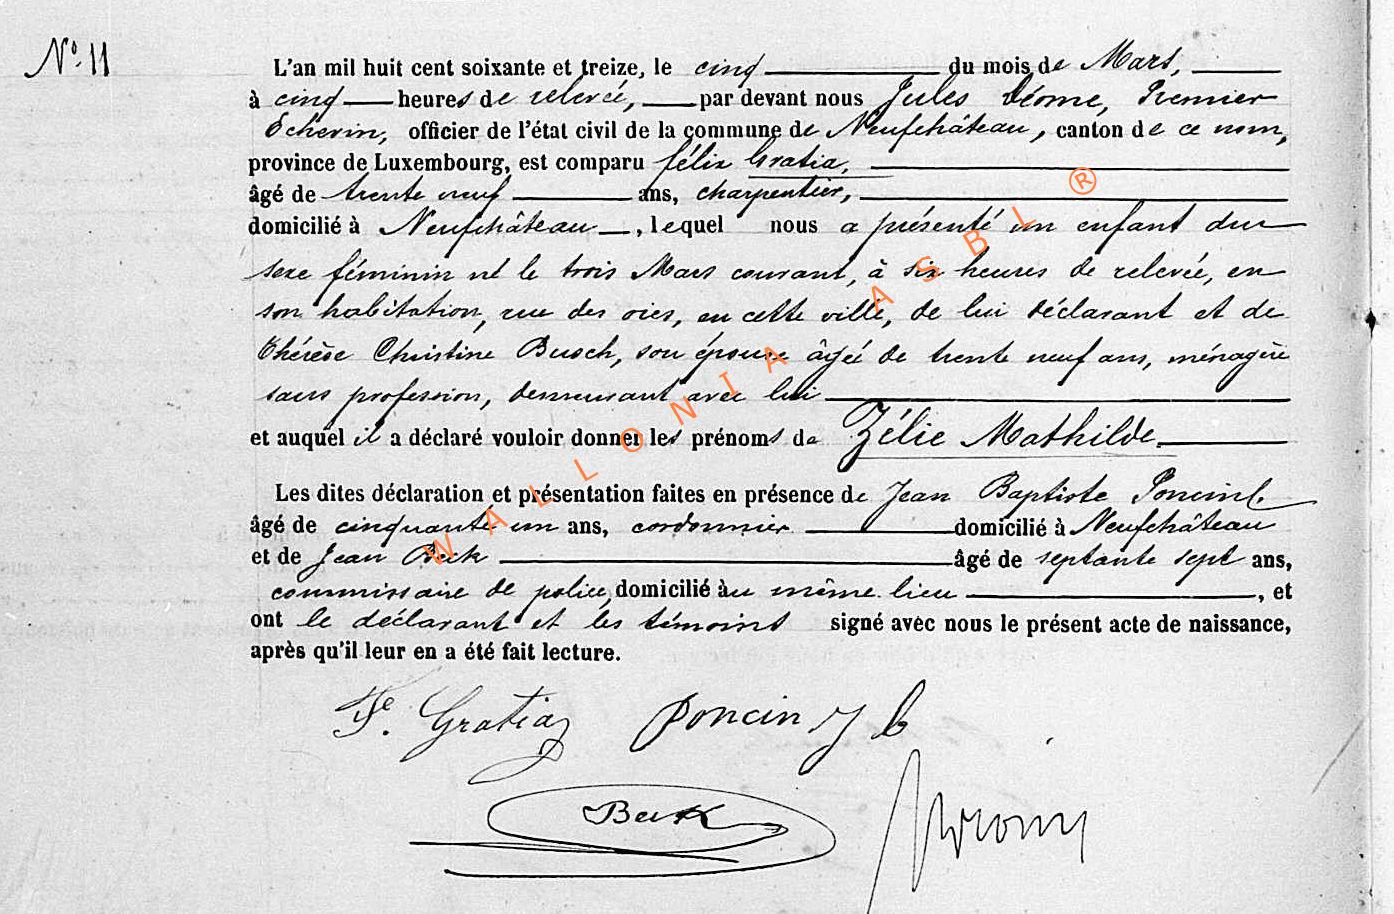 N° 11
L'an mil huit cent soixante et treize, le cinq du mois de Mars,
à cinq heures de relevée, par devant nous Jules Premier
Echevin, officier de l'état civil de la commune de Neufchâteau, canton de ce nom,
province de Luxembourg, est comparu félix Gratia,
âgé de trente neuf ans, charpentier,
domicilié à Neufchâteau, lequel nous a présenté un enfant du
sexe féminin né le trois Mars courant, à six heures de relevée, en
son habitation, rue des oies, en cette ville, de lui déclarant et de
Thérèse Christine Busch, son épouse âgée de trente neuf ans, ménagère
sans profession, demeurant avec lui
et auquel il a déclaré vouloir donner les prénoms de Zélie Mathilde
Les dites déclaration et présentation faites en présence de Jean Baptiste Poncin
âgé de cinquante un ans, cordonnier domicilié à Neufchâteau
et de Jean Beck âgé de septante sept ans,
commissaire de police, domicilié au même lieu, et
ont le déclarant et les témoins signé avec nous le présent acte de naissance,
après qu'il leur en a été fait lecture.
Fe. Gratia Poncin J b
Beck
WALLONIA ASBL ®